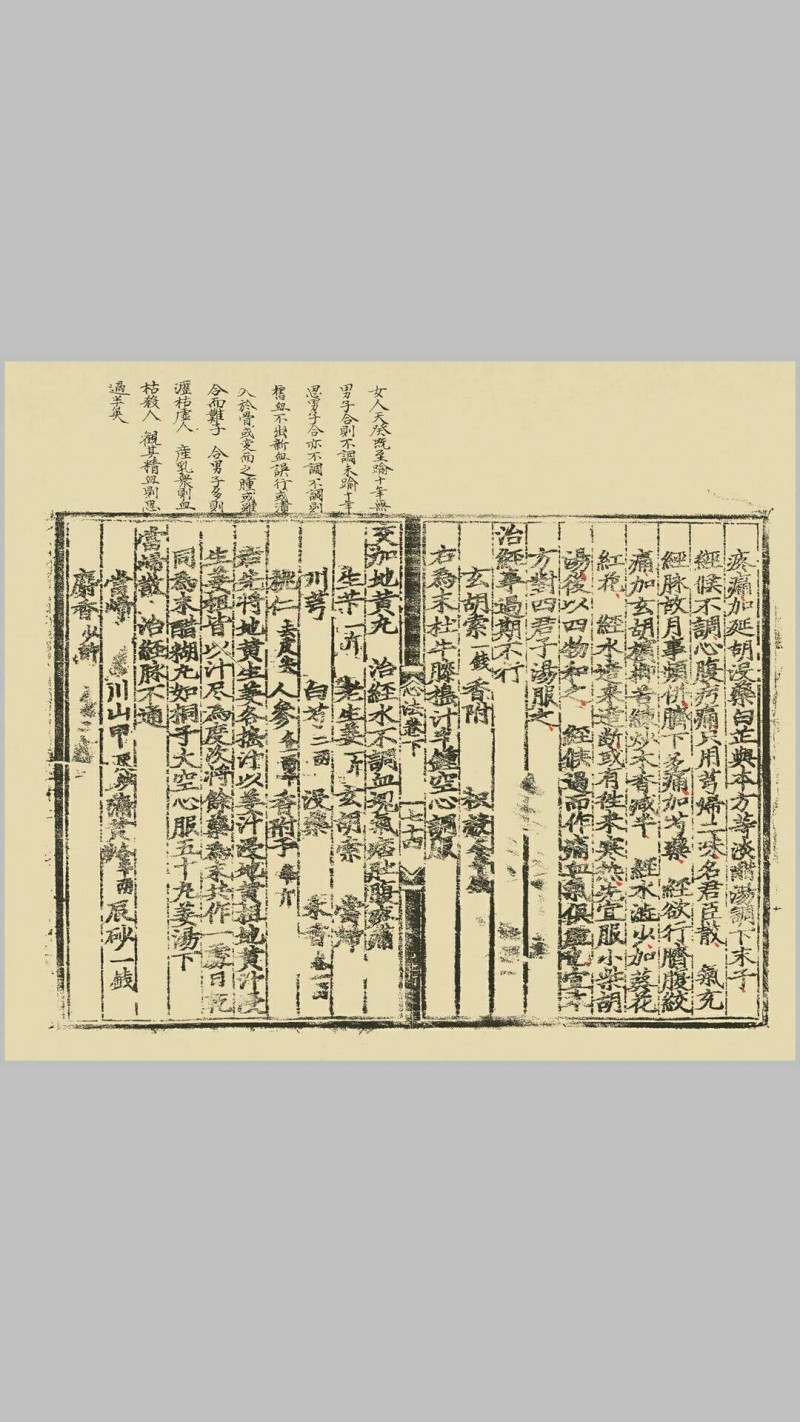 女人天癸既至踰十年無
男子合則不調未踰十年
思男子合亦不調不調則
舊血不出新血誤行或漬
入於骨或変而之腫或雖
合而難子 合男子多則
瀝枯虛人 産乳衆則血
枯殺人 観其精血則思
過半矣
疼痛加延胡沒藥白芷與本方等淡醋湯調下末子
經候不調心腹㽲痛只用芎歸二味名君臣散 氣充
經脉故月事頻併臍下多痛加芍藥 經欲行臍腹絞
痛加玄胡檳榔苦練炒木香减半 經水澁少加葵花
紅花 經水適來適断或有徃来寒热先宜服小柴胡
湯後以四物和之 經候過而作痛血氣俱虛也宜本
方對四君子湯服之
治經事過期不行
玄胡索一錢 香附 枳殼
右為末杜牛膝搗汁半鍾空心調服
心法卷下 七十四
交加地黄丸 治經水不調血塊氣痞肚腹疼痛
生芐一斤 老生姜一斤 玄胡索 當歸
川芎 白芍二兩 沒藥 木香各一兩
桃仁去皮尖 人參 香附子半斤
右先將地黄生姜各搗汁以姜汁浸地黄柤地黄汁浸
生姜柤皆以汁尽為度次將餘藥為末共作一處日乾
同為末醋糊丸如桐子大空心服五十丸姜湯下
當歸散 治經脉不通
當歸 川山甲 蒲黄 辰砂一錢
麝香少許